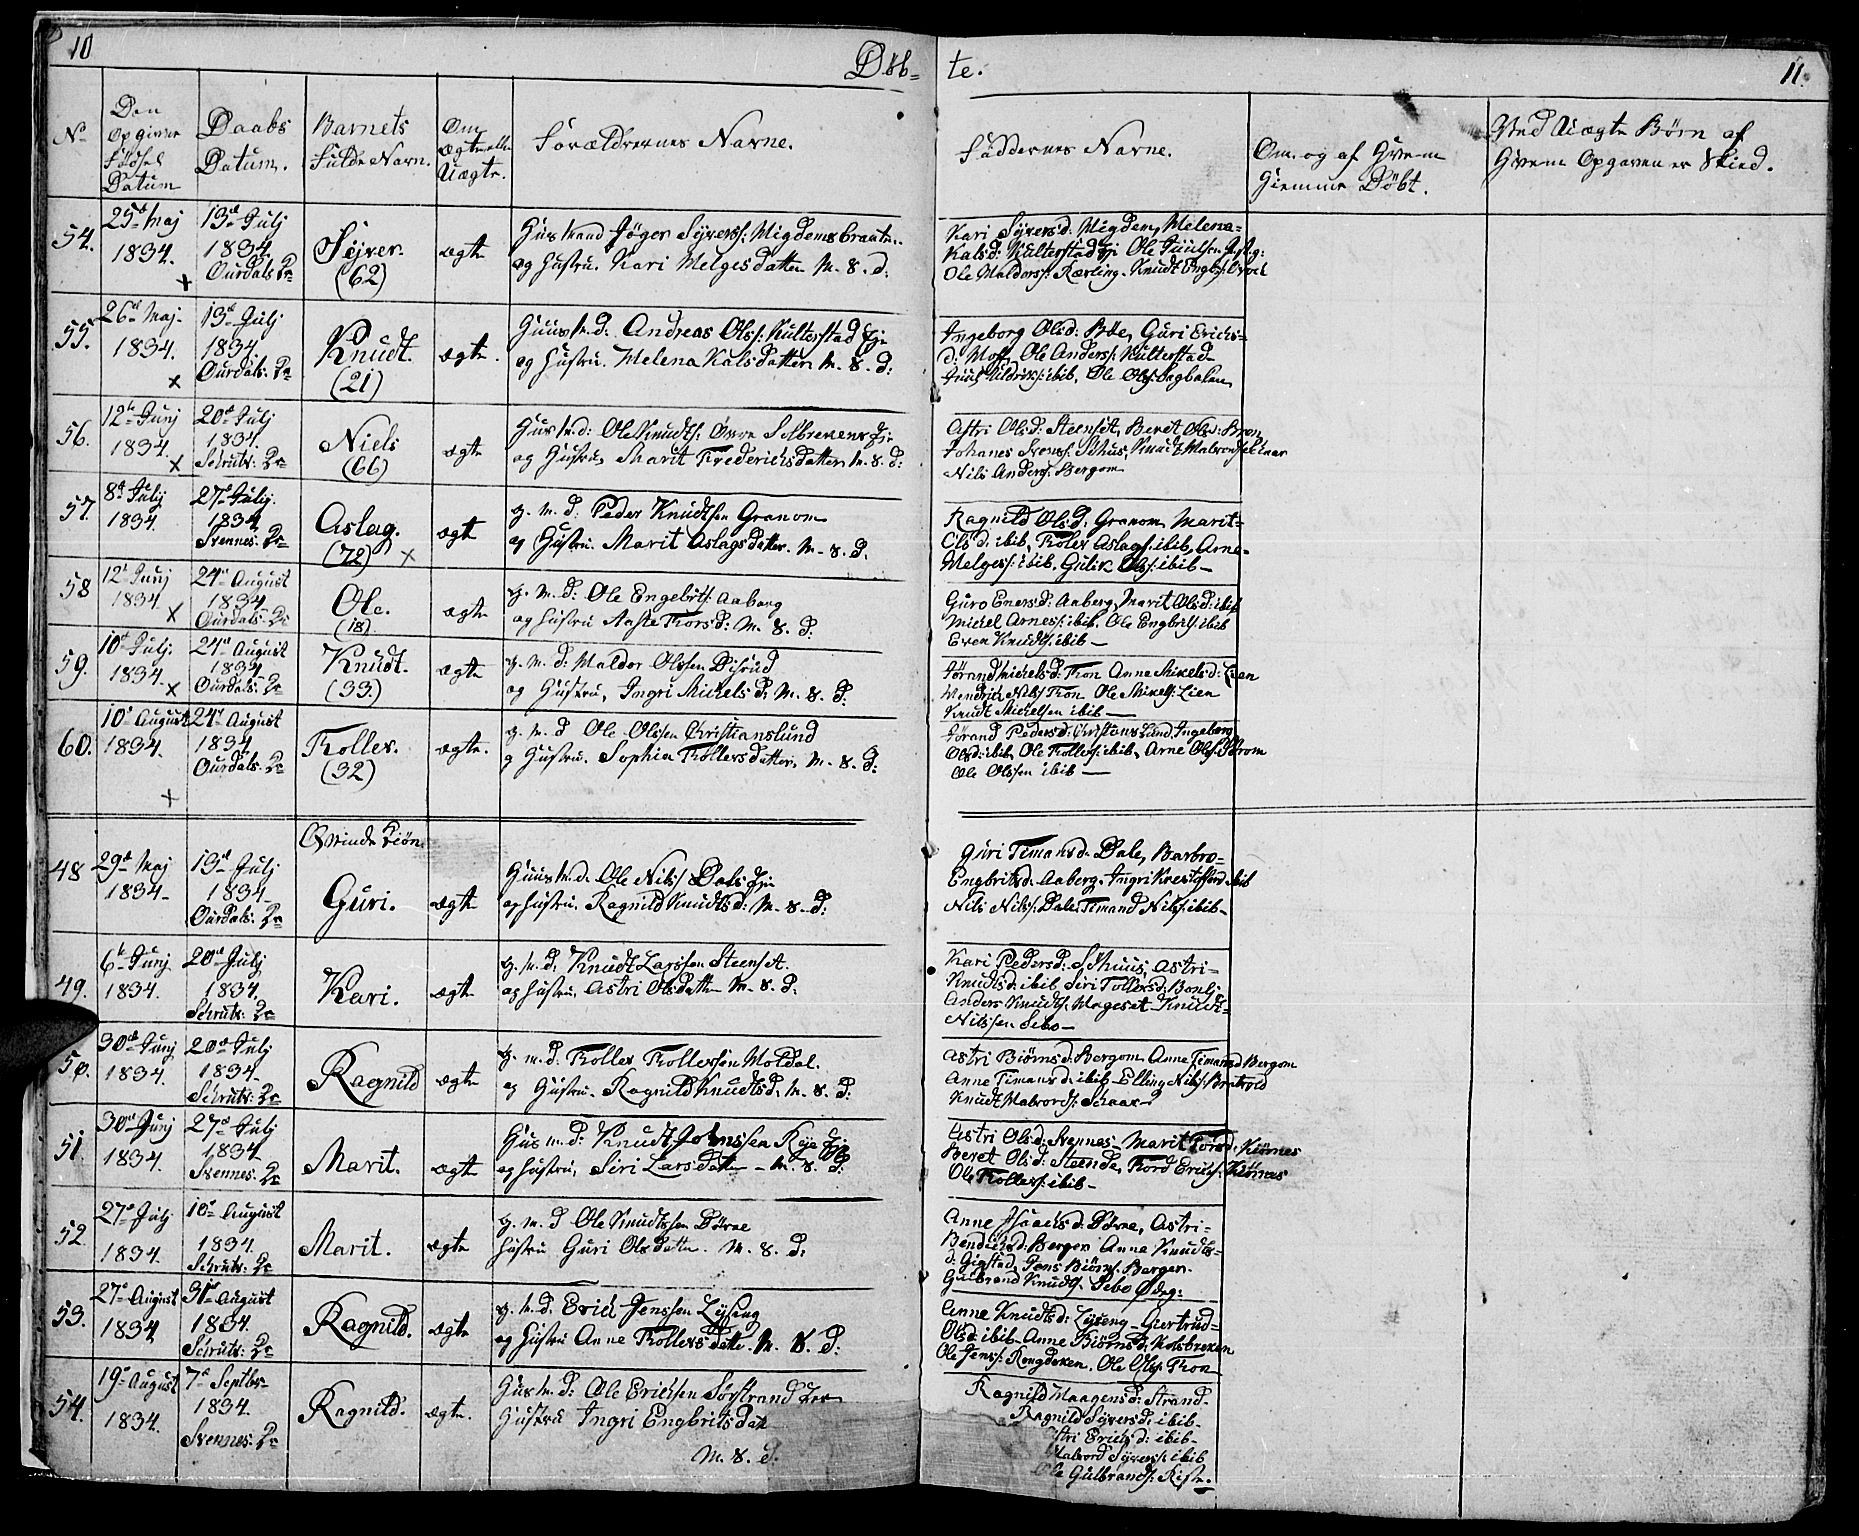 10
Døb=
te.
11.
No
Den
Opgivne
Fødsel
Datum
Daabs
Datum.
Barnets
Fulde Navn.
Om
ægte eller
Uægte.
Forældrernes Navne.
Faddernes Navne.
Om og af Hvem
Hiemme Døbt.
Ved Uægte Børn af
Hvem Opgaven er Skied.
54.
25de Maj
1834.
13de Julj
1834
Ourdals: Ke
Syver.
(62)
ægte
Huusmand Jøger Syvers: Migdensbraaten
og hustru. Kari Melgesdatter M. 8. d:
Kari Syversd: Migden, Melena=
Kalsd: Kulterstad Eje Ole Juulsen
Ole Haldors: Kærling. Knudt
55.
26de Maj
1834.
13de Julj
1834
Ourdals: Ke
Knudt.
(21)
ægte.
Huusm.d: Andreas Ols: Kulterstad Eje
og hustru. Melena Kalsdatter M. 8. d:
Ingeborg Olsd: Bøe, Guri Erichs=
d: Moss, Ole Anders: Kulterstad
Juul ibib, Ole Ols:
56.
12te Junj
1834.
20de Julj
1834.
Schrutv: Ke
Niels
(66)
ægte
Husm.d: Ole Knudts: Øvre Eje
og Hustru, Marit Frederichsdatter M. 8. d:
Astri Olsd: Steenset, Beret Olsd:
Johanes Knudt
Nils Anders: Bergom
57.
8de Julij
1834.
27de Julij.
1834
Svennes. Ke
Aslag.
(72)
ægt
g. m. d: Peder Knudtsen Granom
og Hustru. Marit Aslagsdatter. M. 8. d.
Ragnild Olsd: Granom, Marit=
Olsd: ibib, Tholer Aslags: ibib, Arne
Melges: ibib. Gulik Ols: ibib
58
12te Junj
1834
24de August
1834
Ourdals: Ke
Ole.
(18)
ægte
g. m. d: Ole Engebrits: Aaberg
og hustru Aaste Thorsd: M. 8. d:
Guro Enersd: Aaberg, Marit Olsd: ibib
Mickel Arnes: ibib. Ole Engbrits ibib
Even Knudts: ibib
59.
10de Julj.
1834.
24de August
1834
Ourdals. Ke
Knudt.
(33.)
ægte
g. m. d: Haldor Olssen Disrud
og Hustru, Ingri Mickelsd: M. 8. d.
Jørand Mickelsd: Thon Anne Mikelsd: Lien
Hendrich Nils: Thon Ole Mikels: Lien
Knudt Mickelsen ibib
60.
10de August
1834.
24de August
1834
Ourdals: Ke
Tholler.
(32)
ægte.
g. m. d Ole Olssen Christianslund
g Hustru. Sophia Thollersdatter, M. 8. d:
Jørand Pedersd: Christians Lund, Ingeborg
Olsd: ibib, Ole Thollers: ibib, Arne Ols: Strom
Ole Olssen ibib
Qvindekiøn
48
29de Maj
1834
13de Julj
1834
Ourdals. Ke
Guri.
ægte
Huusm.d. Ole Nils: Dals Eje
og hustru. Ragnild Knudtsd: M. 8. d:
Guri Timansd. Dale, Barbro
Engbritsd. Aaberg. Ingri Krestoffersd ibib
Nils Nils: Dale, Timand Nils: ibib
49.
6te Junj
1834.
20de Julj
1834.
Schrutv: Ke
Kari.
ægte
g. m. d. Knudt Larssen Steenset.
og hustru, Astri Olsdatter M. 8. d.
Kari Pedersd: Sehuus, Astri
Knudtsd: ibib Siri Tollersd: Bonli
Anders Knudts: Hageset Knudt
Nilssen Sebo
50.
30de Junj
1834.
20de Julj
1834
Schrutv: Ke
Ragnild
ægte
g. m. d. Tholler Thollersen Moldal.
og Hustru. Ragnild Knudtsd. M. 8. d:
Astri Biørnsd: Bergom. Anne Timansd Bergom
Anne Timansd: ibib Elling Nils: Bratvold
Knudt Halvords: Schaar
51.
30de Junj
1834.
27de Julj
1834.
Svennes: Ke
Marit.
ægte
Hus m. d: Knudt Johnssen Røje Eje
og hustru, Siri Larsdatter M. 8. d:
Astri Olsd: Svennes Marit Thord: Kiørnes
Beret Olsd: Steende, Thord Erichs: Kiørnes
Ole Thollers: ibib
52.
27de Julj
1834.
10de August
1834.
Schrutv: Ke
Marit.
ægte
g. m. d Ole Knudtssen Børne
hustru Guri Olsdatter. M. 8. d:
Anne Isaachsd: Børne, Astri
Bendichsd: Berger Anne Knudts
d: Gigstad, Jens Biørns: Berger.
Gulbrand Knudts: Sebo Ødeg:
53.
27de August
1834
31te August
1834.
Schrutv: Ke
Ragnild.
ægte
g. m. d. Erich Jenssen Lyseng
og hustru Anne Thollersdatter. M. 8. d:
Anne Knudtsd: Lyseng Giertrud
Olsd: ibib Anne Biørnsd: Kolsbreken
Ole Jens: Rongdeken. Ole Ols: Thon
54.
19de August
1834.
7de Septbr
1834.
Svennes: Ke
Ragnild.
ægte.
Husm.d: Ole Erichsen Sørstrand Eje
Hustru Ingri Engbritsdat
M. 8. d.
Ragnild Haagensd: Strand
Ragnild Syversd: ibib
stri Erichsd: ibib
Halvord Syvers: ibib
Ole Gulbrands: Riste